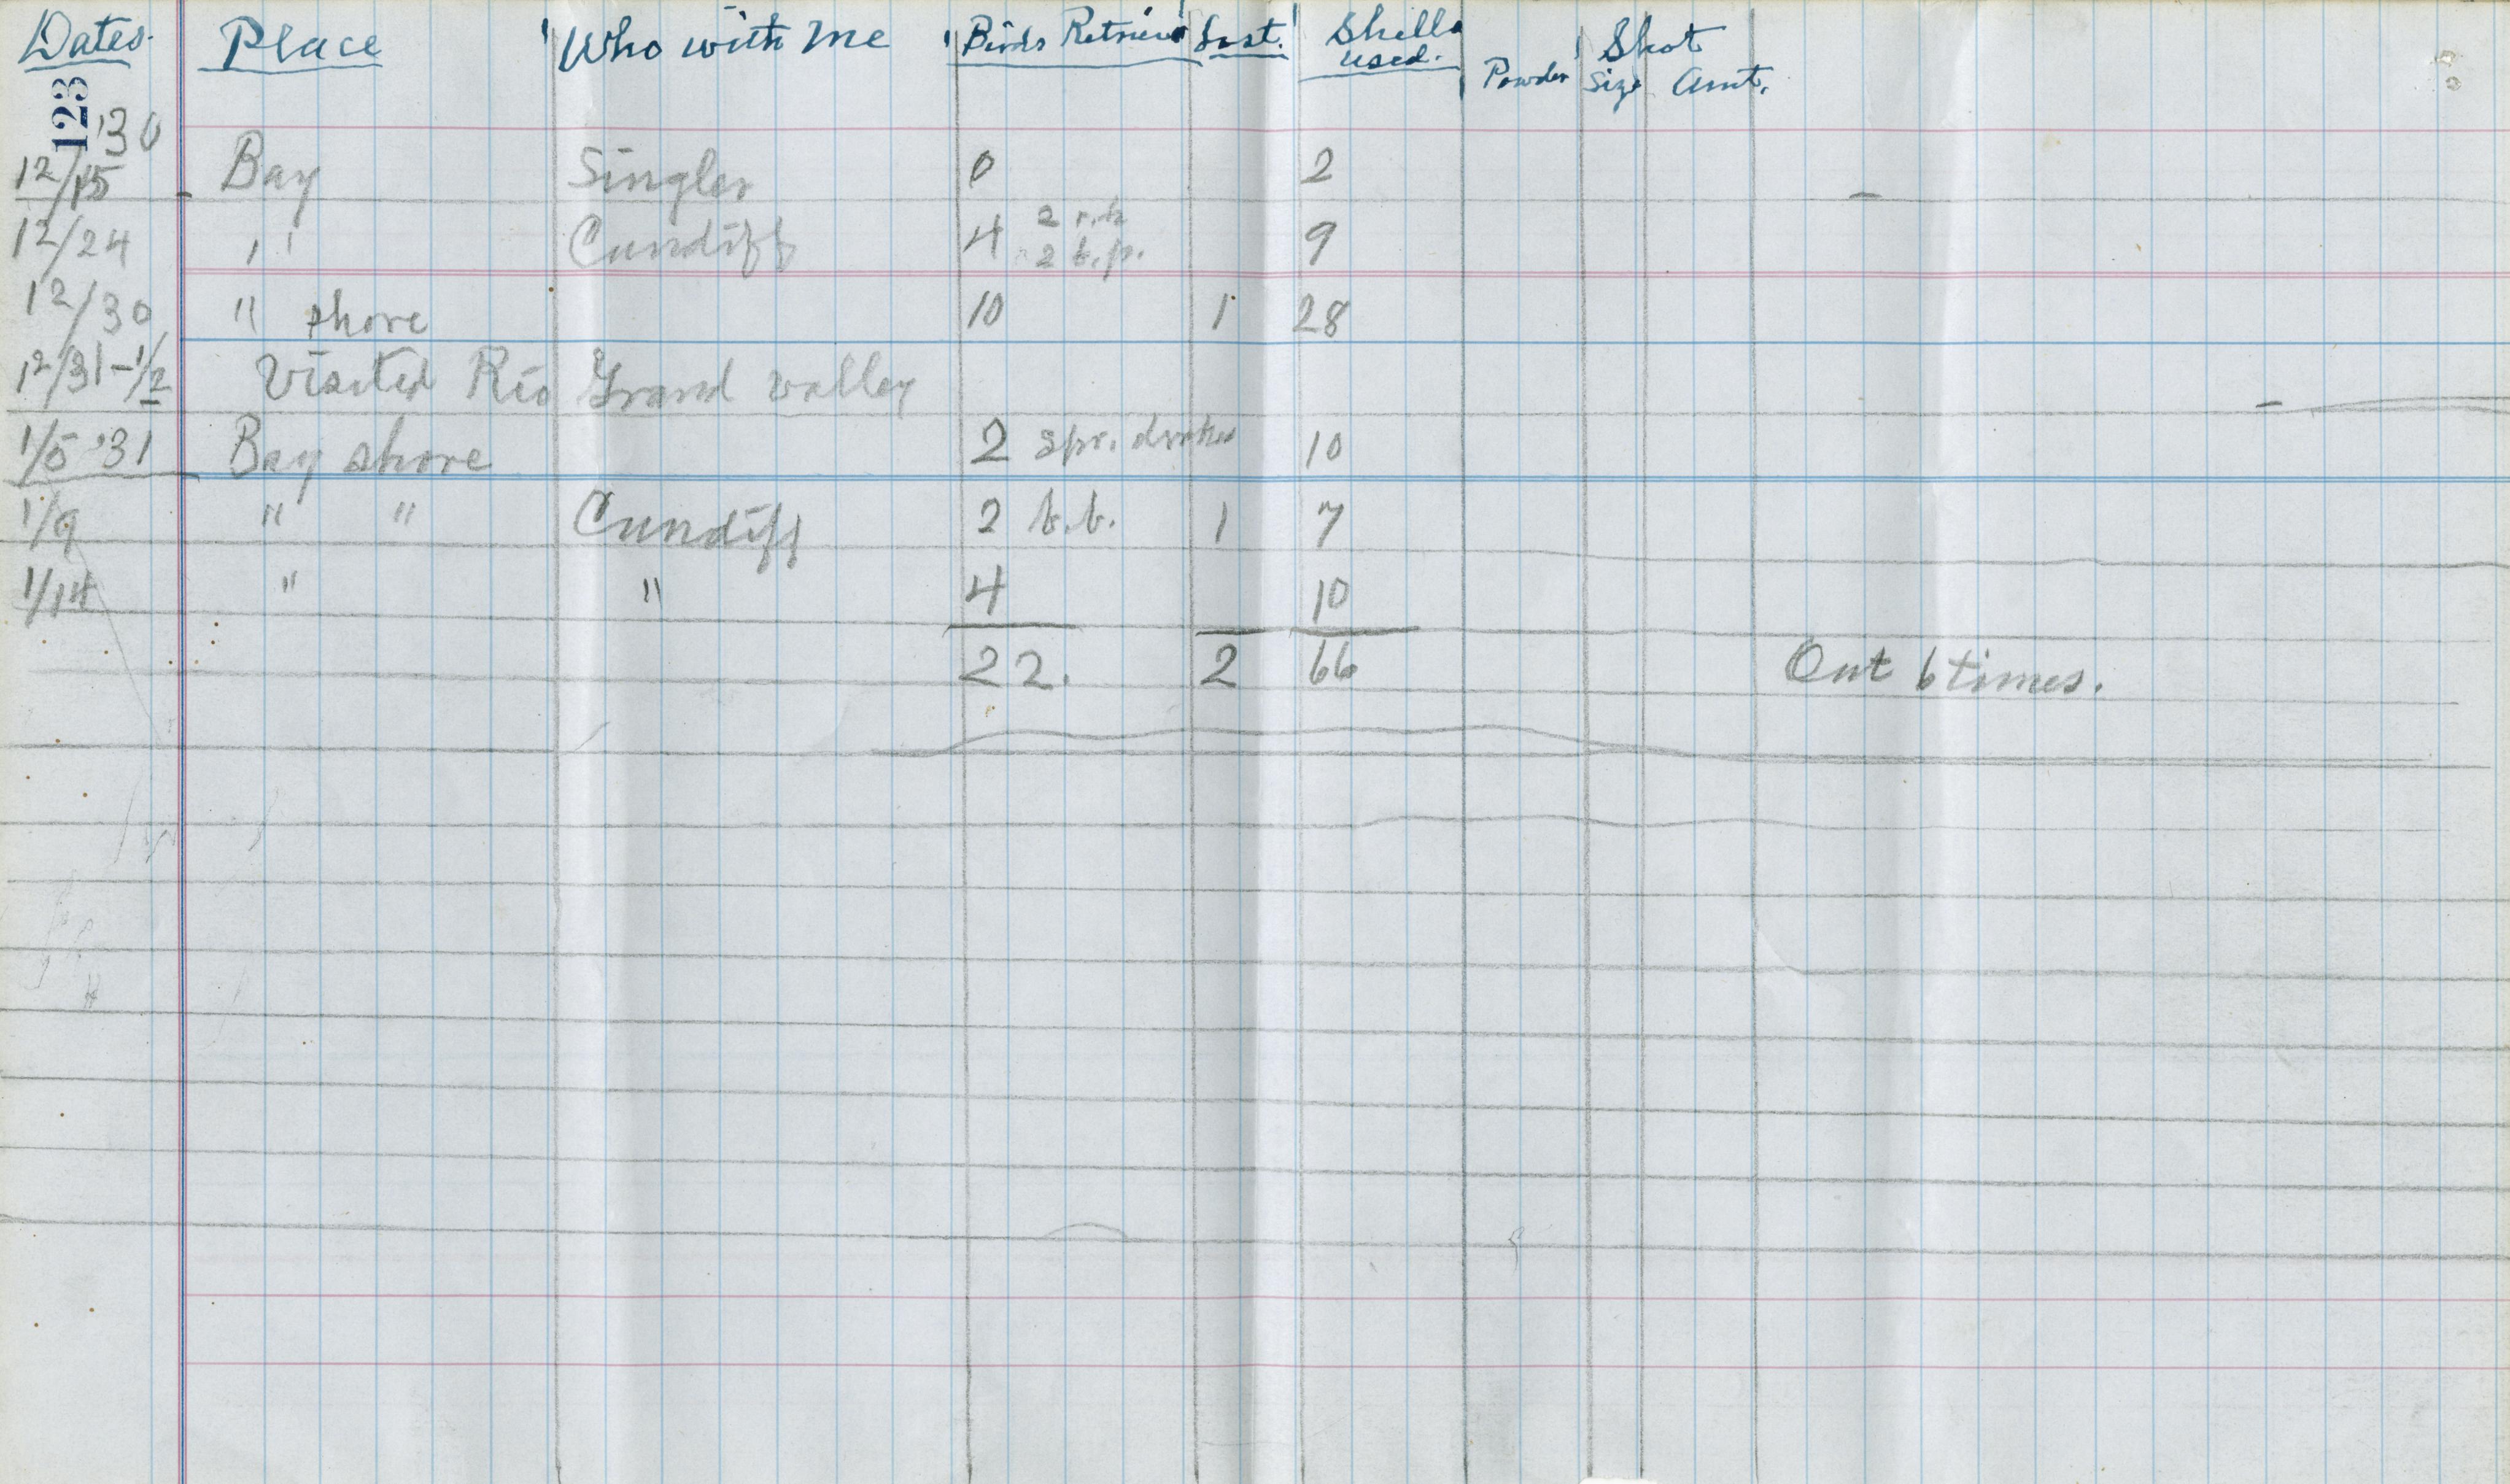 Dates. Place Who with me Birds Retrieved Lost. Shells used. Powder Shot Size Amt.
123
'30
12/15 Bay Singler 0 2
12/24 " Cundiff 4 2 r.h. 2 b.p. 9
12/30 " shore 10 1 28
12/31-1/2 Visited Rio Grand valley
1/5 '31 Bay shore 2 spr. drakes 10
1/9 " " Cundiff 2 b.b. 1 7
1/14 " " 4 10
22. 2 66 Out 6 times.